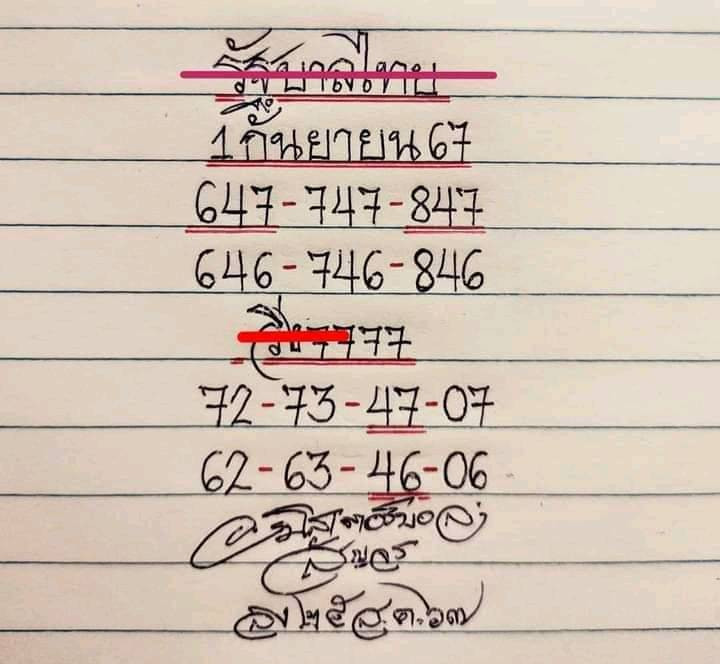 รัฐบาลไทย
1 กันยายน 67
647-747-847
646-746-846
วิ่ง 7777
72-73-47-07
62-63-46-06
สัญจร
ลง ๒๕ ส.ค. ๖๗